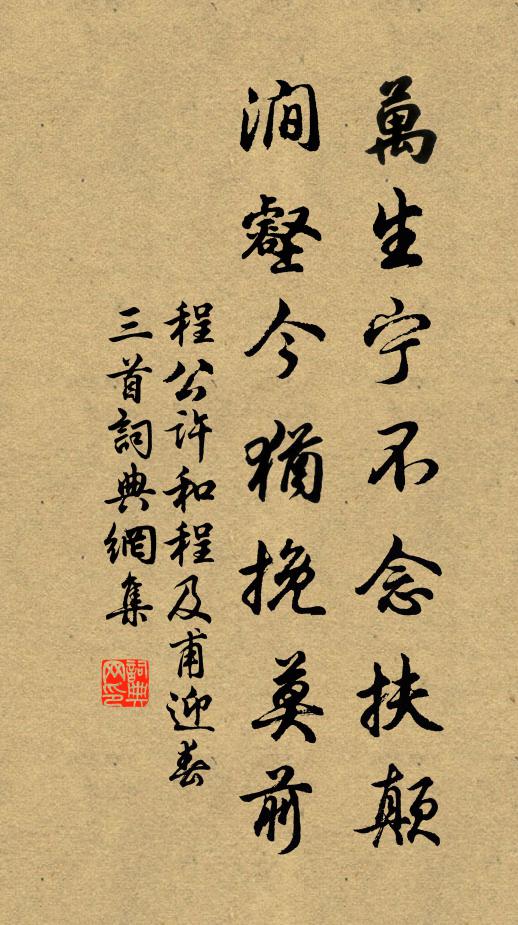 萬生宁不念扶顛
澗壑今猶挽莫前
程公许和程及甫迎春
三首詞典網集
詞典网印